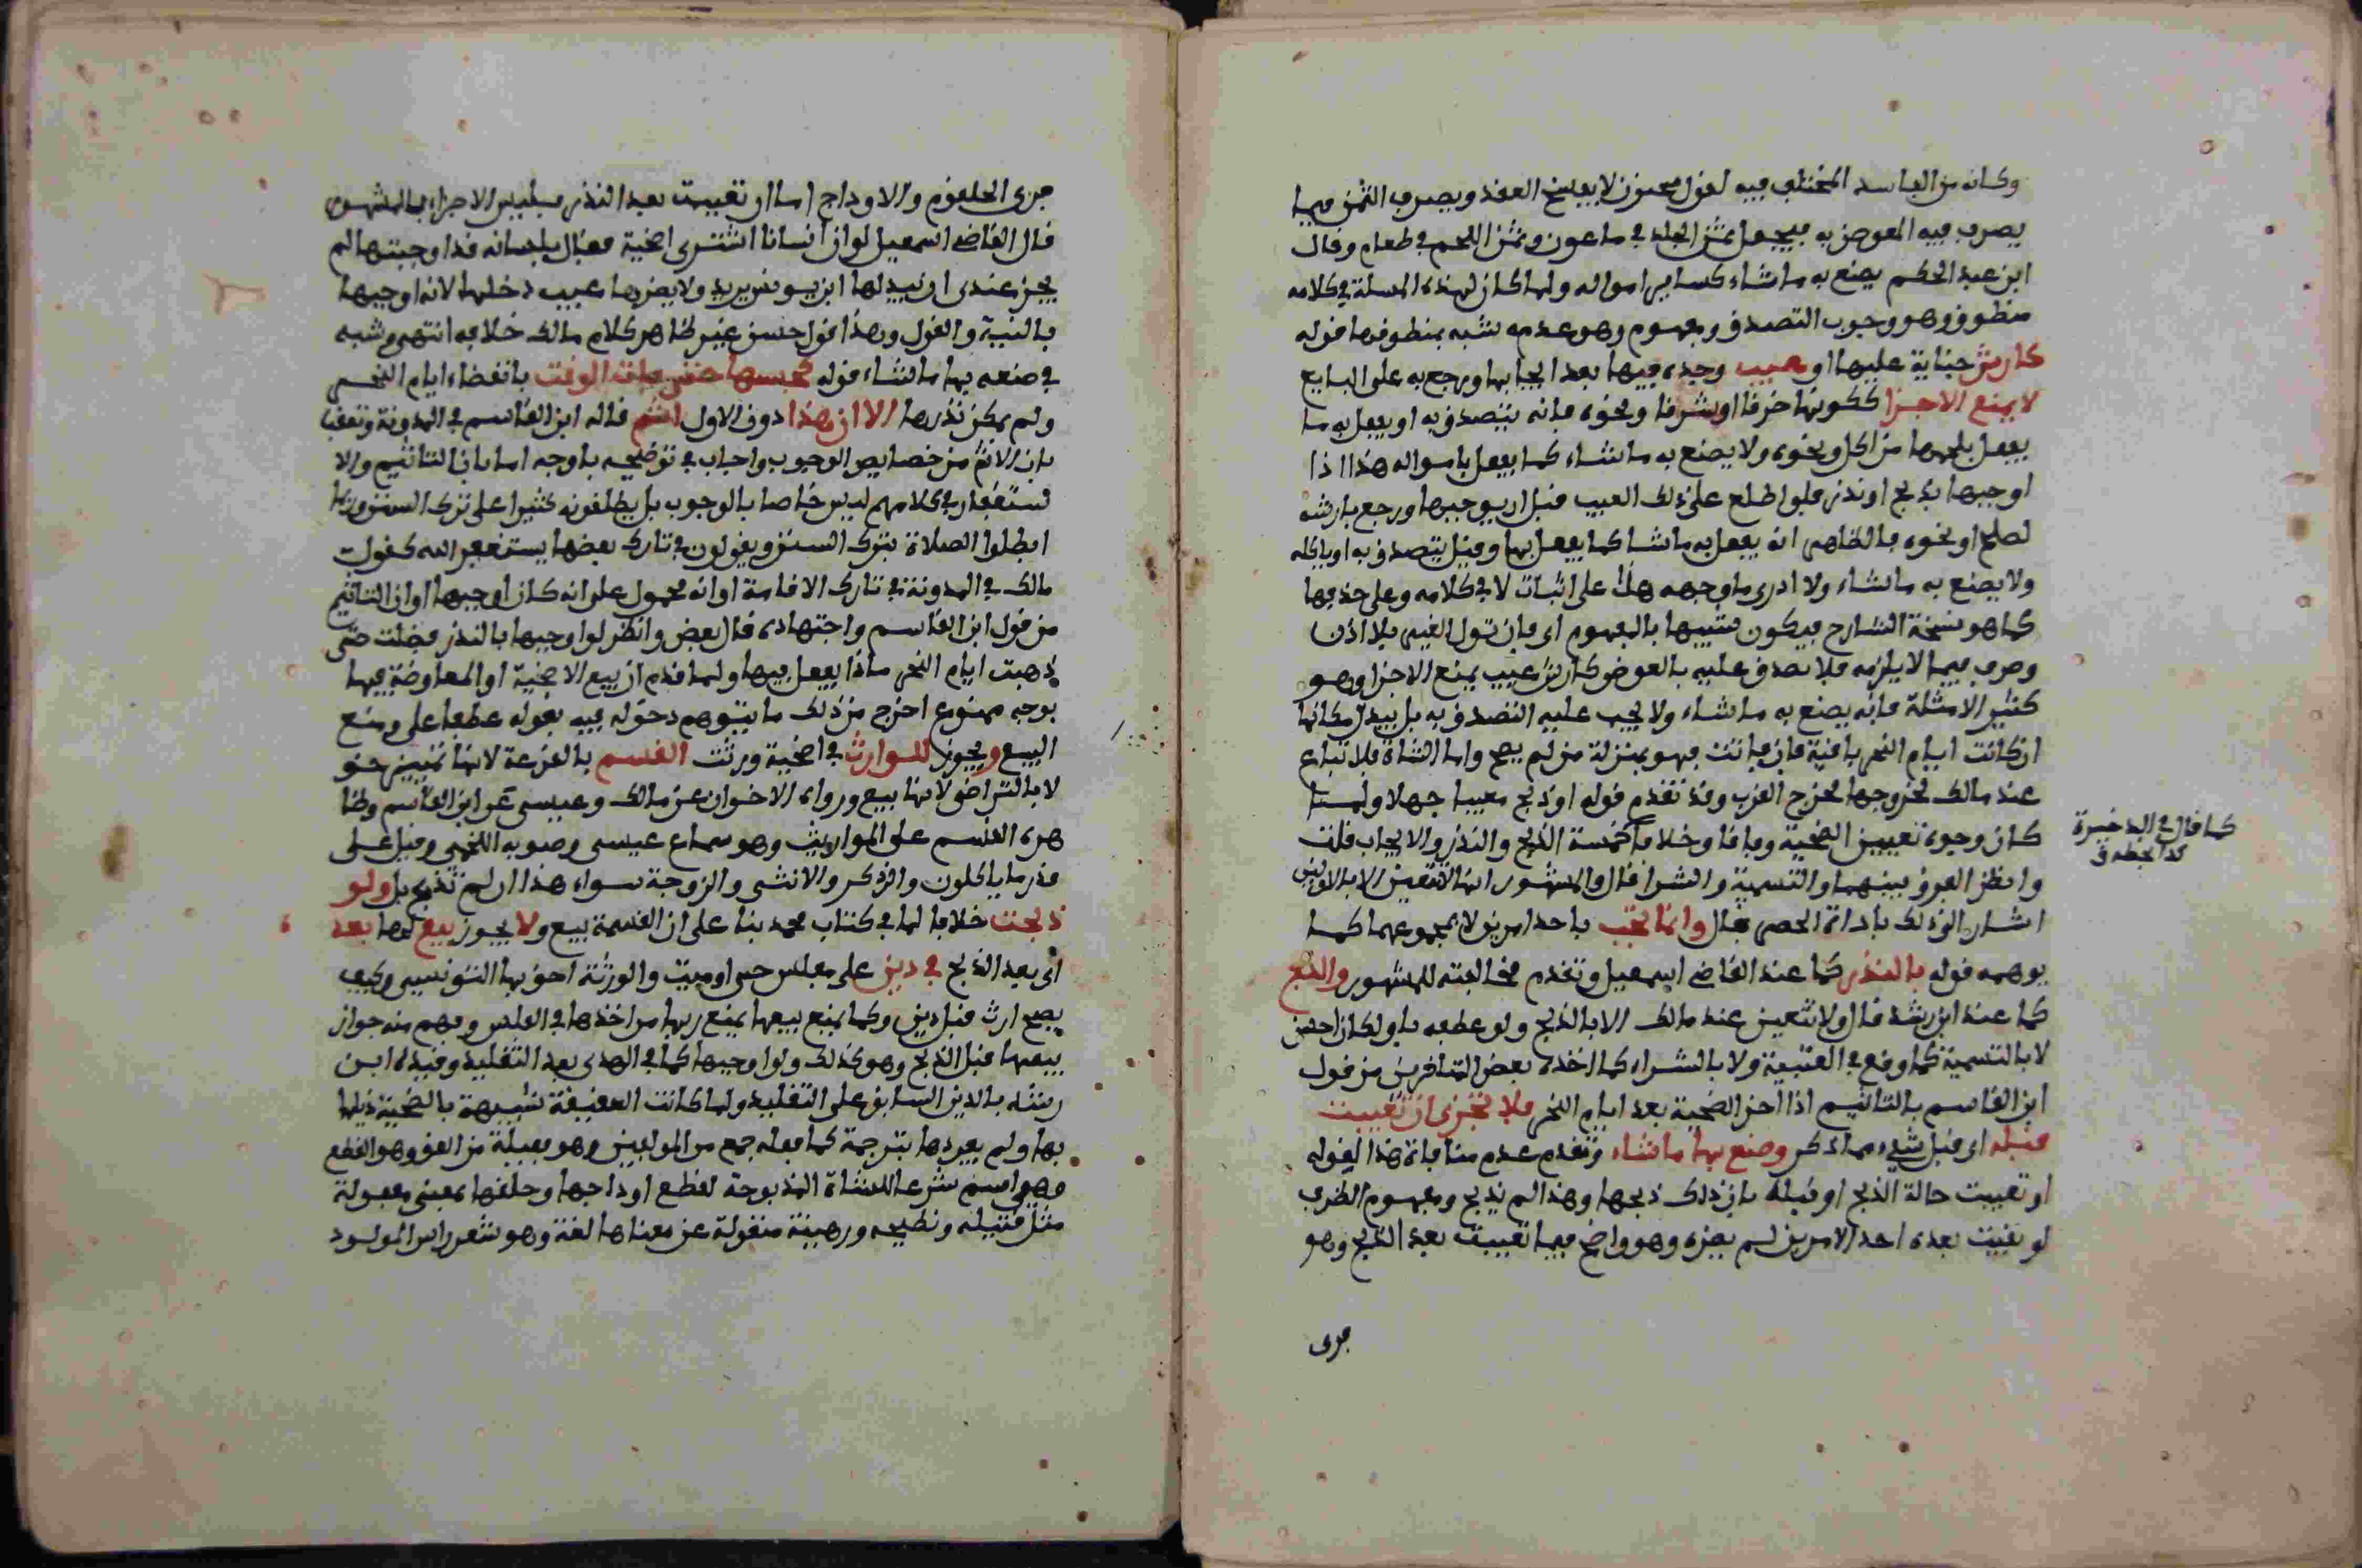 وكانه من الفاسد المختلف فيه لقول سحنون لا يفسخ العقد ويصرف الثمن فيما
يصرف فيه المعوض به فيجعل ثمن الجلد في ماعون وثمن اللحم في طعام وقال
ابن عبد الحكم يصنع به ما شاء كساير امواله ولما كان لهذه المسلة في كلامه
منطوق وهو وجوب التصدق ومفهوم وهو عدمه شبه بمنطوقها قوله
كارش جناية عليها او عيب وجده فيها بعد ايجابها ورجع به على البايع
لا يمنع الاجزا ككونها خرقا او شرقا ونحوه فانه يتصدق به او يفعل به ما
يفعل بلحمها من اكل ونحوه ولا يصنع به ما شاء كما يفعل باموله هذا اذا
اوجبها بذبح او نذر فلو اطلع على ذلك العيب قبل ان يوجبها ورجع بارشه
لصلح او نحوه فالظاهر انه يفعل به ما شا كما يفعل بها وقيل يتصدق به او ياكله
ولا يصنع به ما شاء ولا ادري ما وجهه هذا على اثبات لا في كلامه وعلى حذفها
كما هو نسخة الشارح فيكون شبيها بالمفهوم اي فان تول الغير بلا اذن
وصرف فيما لا يلزمه فلا تصدق عليه بالعوض كارش عيب يمنع الاجزا وهو
كثير الامثلة فانه يصنع به ما شاء ولا يجب عليه التصدق به بل يبدل مكانها
ان كانت ايام النحر باقية فان فاتت فهو بمنزلة من لم يضح واما الشاة فلا تباع
عند مالك لخروجها مخرج القرب وقد تقدم قوله او ذبح معيبا جهلا ولما
كان وجوه تعيين الضحية وفاقا وخلافا خمسة الذبح والنذر والايجاب قلت
كما قال في الذخيرة
وانظر الفرق بينهما والتسمية والشرا قال والمشهور انها لا تتعين الا بالاولين
اشار الى ذلك باداة الحصر فقال وانما تجب باحد امرين لا بمجموعهما كما
يوهمه قوله بالنذر كما عند القاضي اسمعيل وتقدم مخالفته للمشهور والذبح
كما عند ابن رشد قال ولا تتعين عند مالك الا بالذبح ولو عطفه باو لكان احسن
لا بالتسمية كما وقع في العتبية ولا بالشراء كما اخذه بعض المتاخرين من قول
ابن القاسم بالتاثيم اذا اخر الضحية بعد ايام النحر فلا تجزي ان تعيبت
قبله اي قبل شيء مما ذكر وصنع بها ما شاء وتقدم عدم منافاة هذا لقوله
او تعيبت حالة الذبح او قبله بان ذلك ذبحها وهذا لم يذبح ومفهوم الظرف
لو تعيبت بعده احد الامرين لم يضره وهو واضح فيما تعيبت بعد الذبح وهو
فرى
فرى الحلقوم والاوداج اما ان تعيبت بعد النذر فليس الاجزاء بالمشهور
قال القاضي اسمعيل لو ان انسانا اشترى اضحية فقال بلسانه قد اوجبتها لم
يجز عندي ان يبدلها ابن يونس يريد ولا يضرها عيب دخلها لانه اوجبها
بالنية والقول وهذا قول حسن غير ظاهر كلام مالك خلافه انتهى وشبه
في صنعه بها ما شاء قوله كحبسها حتى فات الوقت بانقضاء ايام النحر
ولم يمكن نذرها الا ان هذا دون الاول اثم قاله ابن القاسم في المدونة وتعقب
بان الاثم من خصايص الوجوب واجاب في توضيحه باوجه اما بان التاثيم والا
ستغفار في كلامهم ليس خاصا بالوجوب بل يطلقونه كثيرا على ترك السنن وربما
ابطلوا الصلاة بترك السنن ويقولون في تارك بعضها يستغفر الله كقول
مالك في المدونة في تارك الاقامة او انه محمول على انه كان اوجبها او ان التاثيم
من قول ابن القاسم واجتهاده قال بعض وانظر لو اوجبها بالنذر فضلت حتى
ذهبت ايام النحر ماذا يفعل فيها ولما قدم ان بيع الاضحية او المعاوضة فيها
بوجه ممنوع اخرج من ذلك ما يتوهم دخوله فيه بقوله عطفا على ومنع
البيع ويجوز للوارث في اضحية ورثت القسم بالقرعة لانها تمييز حق
لا بالتراضي لانها بيع ورواه الاخوان عن مالك وعيسى عن ابن القاسم وظا
هره القسم على المواريث وهو سماع عيسى وصوبه اللخمي وقيل على
قدر ما ياكلون والذكر والانثى والزوجة سواء هذا ان لم تذبح بل ولو
ذبحت خلافا لما في كتاب محمد بنا على ان القسمة بيع ولا يجوز بيع لحمها بعد
اي بعد الذبح في دين على مفلس حي او ميت والورثة احق بها التونسي وكيف
يصح ارث قبل دين وكما يمنع بيعها يمنع ربها من اخذها في الفلس وفهم منه جواز
بيعها قبل الذبح وهو كذلك ولو اوجبها كما في الهدي بعد التقليد وقيده ابن
رشد بالدين السابق على التقليد ولما كانت العقيقة شبيهة بالضحية ذيلها
بها ولم يفردها بترجمة كما فعله جمع من المولفين وهو فعيلة من العق وهو القطع
فهي اسم شرعا للشاة المذبوحة لقطع اوداجها وحلقها بمعنى مفعولة
مثل قتيلة ونطيحة ورهينة منقولة عن معناها لغة وهو شعر راس المولود